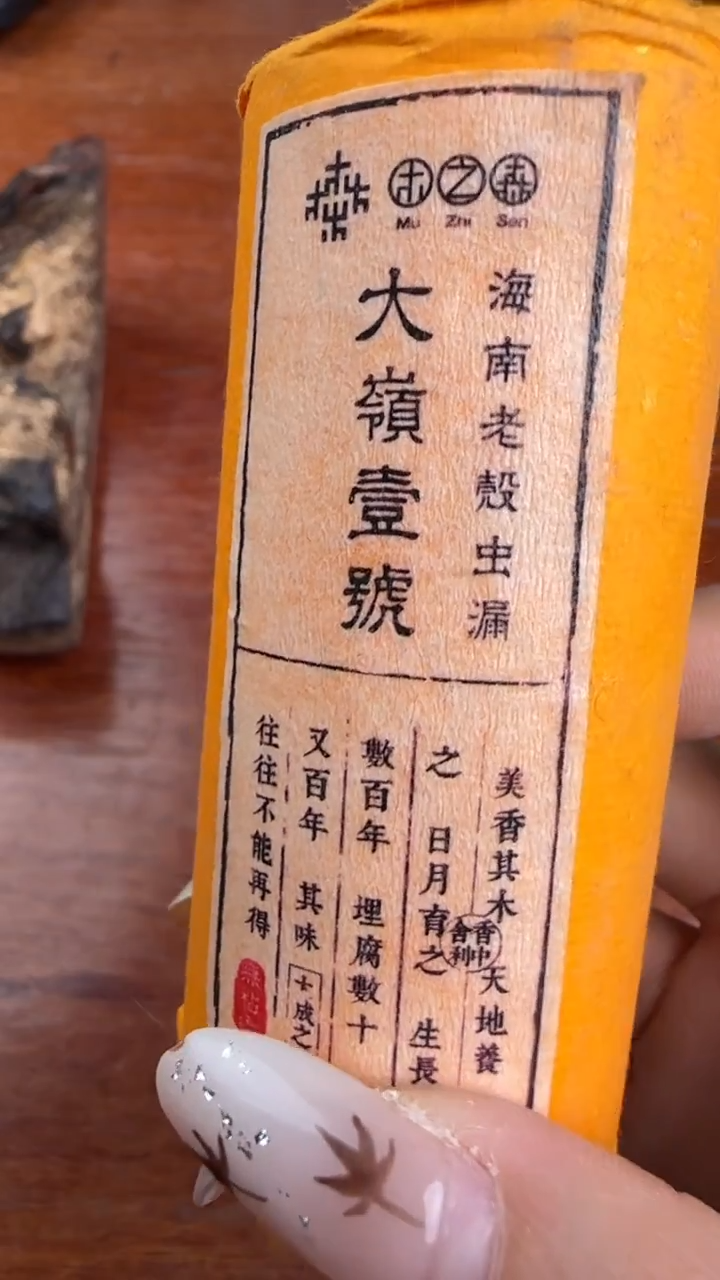 木之森
Mu Zhi Sen
海南老殼虫漏
大嶺壹號
美香其木 天地養
之 日月育之 生長
數百年 埋腐數十
又百年 其味
十成之
往往不能再得
香中
舍利